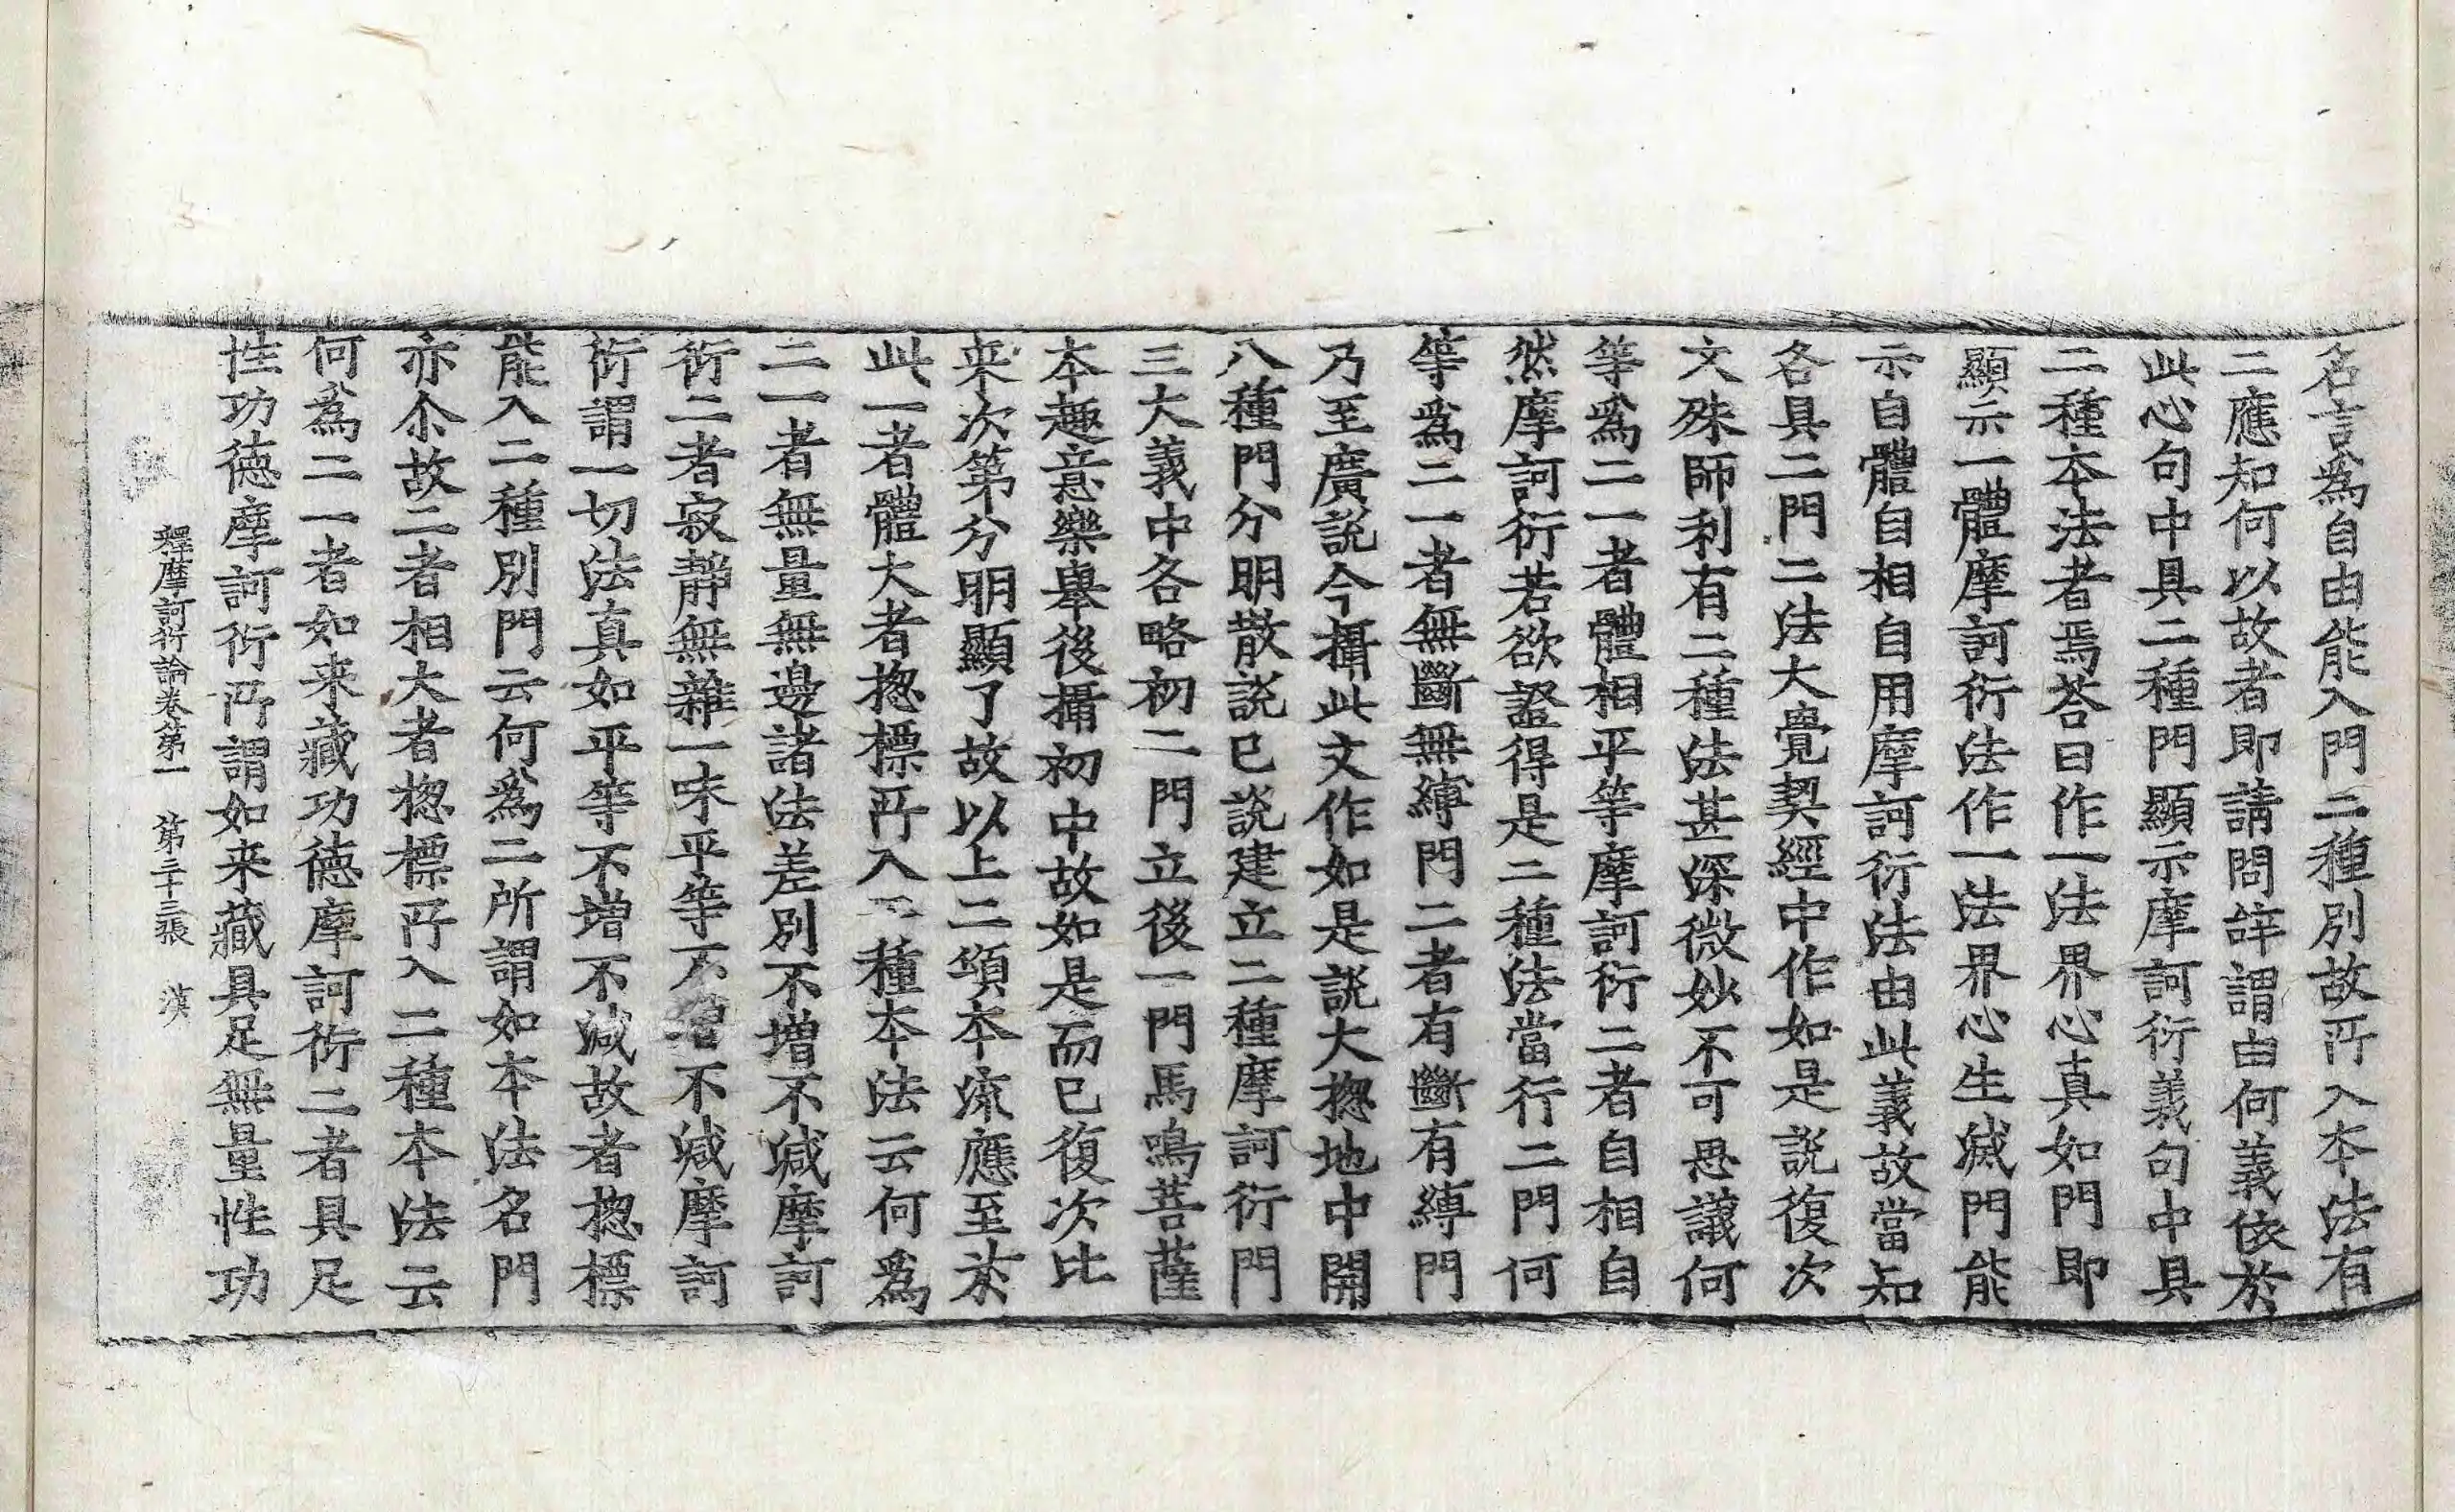 名言為自由能入門二種別故所入本法有
二應知何以故者即請問辞謂由何義依於
此心句中具二種門顯示摩訶衍義句中具
二種本法者焉荅曰作一法界心真如門即
顯示一體摩訶衍法作一法界心生滅門能
示自體自相自用摩訶衍法由此義故當知
各具二門二法大覺契經中作如是說復次
文殊師利有二種法甚深微妙不可思議何
等爲二一者體相平等摩訶衍二者自相自
然摩訶衍若欲證得是二種法當行二門何
等爲二一者無斷無縛門二者有斷有縛門
乃至廣說今攝此文作如是說大揔地中開
八種門分明散說已說建立二種摩訶衍門
三大義中各略初二門立後一門馬鳴菩薩
本趣意樂舉後攝初中故如是而已復次比
来次第分明顯了故以上二頌本流應至于
此一者體大者揔標所入二種本法云何爲
二一者無量無邊諸法差別不增不減摩訶
衍二者寂靜無雜一味平等不增不減摩訶
衍謂一切法真如平等不增不減故者揔標
能入二種別門云何爲二所謂如本法名門
亦尒故二者相大者揔標所入二種本法云
何爲二一者如来藏功德摩訶衍二者具足
性功德摩訶衍所謂如来藏具足無量性功
釋摩訶衍論卷第一 第三十三張 漢